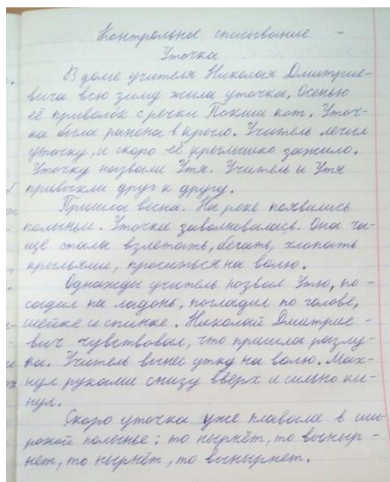 Контрольное списывание
Уточка
В доме учителя Николая Дмитрие-
вича всю зиму жила уточка. Осенью
её приволок с речки Покши кот. Уточ-
ка была ранена в крыло. Учитель лечил
уточку, и скоро её крылышко зажило.
Уточку назвали Утя. Учитель и Утя
привыкли друг к другу.
Пришла весна. На реке появились
полыньи. Уточка заволновалась. Она ча-
ще стала взлетать, бегать, хлопать
крыльями, проситься на волю.
Однажды учитель позвал Утю, по-
садил на ладонь, погладил по голове,
шейке и спинке. Николай Дмитрие-
вич чувствовал, что пришла разлу-
ка. Учитель вынес утку на волю. Мах-
нул руками снизу вверх и сильно ки-
нул.
Скоро уточка уже плавала в ши-
рокой полынье: то нырнёт, то выныр-
нет, то нырнёт, то вынырнет.